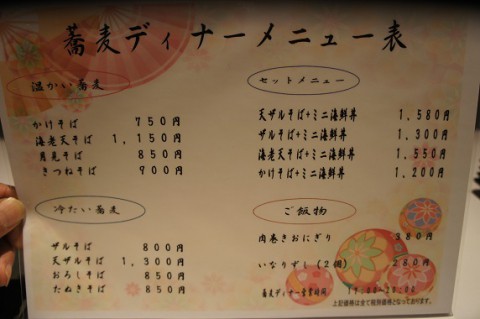 蕎麦ディナーメニュー表
温かい蕎麦
かけそば 750円
海老天そば 1,150円
月見そば 850円
きつねそば 900円
冷たい蕎麦
ザルそば 800円
天ザルそば 1,300円
おろしそば 850円
たぬきそば 850円
セットメニュー
天ザルそば+ミニ海鮮丼 1,580円
ザルそば+ミニ海鮮丼 1,300円
海老天そば+ミニ海鮮丼 1,550円
かけそば+ミニ海鮮丼 1,200円
ご飯物
肉巻きおにぎり 380円
いなりずし(2個) 280円
蕎麦ディナー営業時間 17:00~20:00
上記価格は全て税別価格となっております。